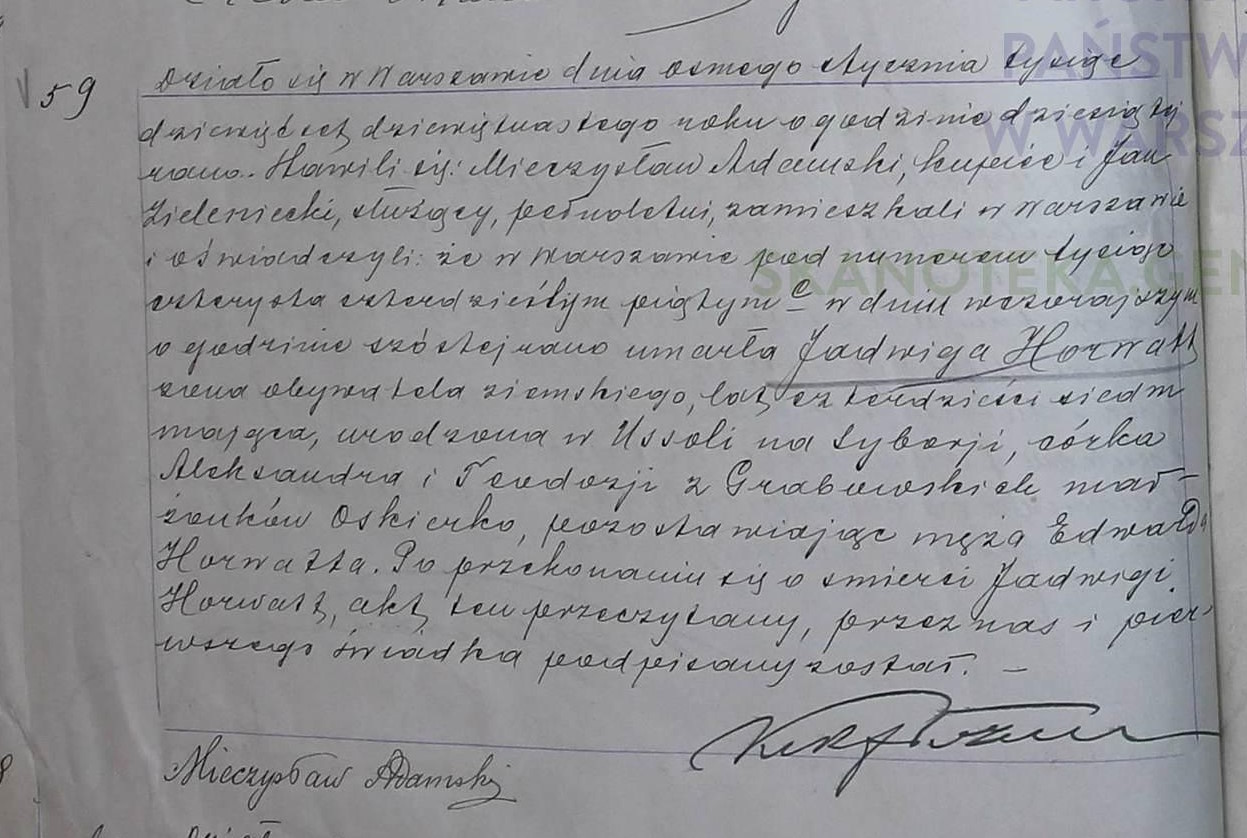 PAŃSTW
W WARSZ
59 Działo się w Warszawie dnia ósmego stycznia tysiąc
dziewięćset dziewiętnastego roku o godzinie dziesiątej
rano. Stawili się: Mieczysław Adamski, kupiec i Jan
Zieleniecki, służący, pełnoletni, zamieszkali w Warszawie
i oświadczyli: że w Warszawie pod numerem tysiąc
SKANOTEKA.GEN
czterysta czterdziestym piątym c w dniu wczorajszym
o godzinie szóstej rano umarła Jadwiga Horwatt
żona obywatela ziemskiego, lat czterdzieści siedm
mająca, urodzona w Ussoli na Syberji, córka
Aleksandra i Teodozji z Grabowskich mał-
żonków Oskierko, pozostawiając męża Edwarda
Horwatta. Po przekonaniu się o śmierci Jadwigi
Horwatt, akt ten przeczytany, przez nas i pier-
wszego świadka podpisany został. —
Mieczysław Adamski